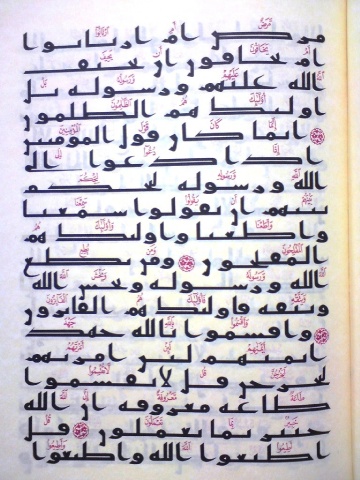 مرض ام ارتابوا
ام يخافون ان يحيف
الله عليهم ورسوله بل
اولئك هم الظلمون
انما كان قول المومنين
اذا دعوا الى
الله ورسوله ليحكم
بينهم ان يقولوا سمعنا
واطعنا واولئك هم
المفلحون ومن يطع
الله ورسوله ويخش الله
ويتقه فاولئك هم الفايزون
واقسموا بالله جهد
ايمنهم لئن امرتهم
ليخرجن قل لا تقسموا
طاعه معروفه ان الله
خبير بما تعملون قل
اطيعوا الله واطيعوا